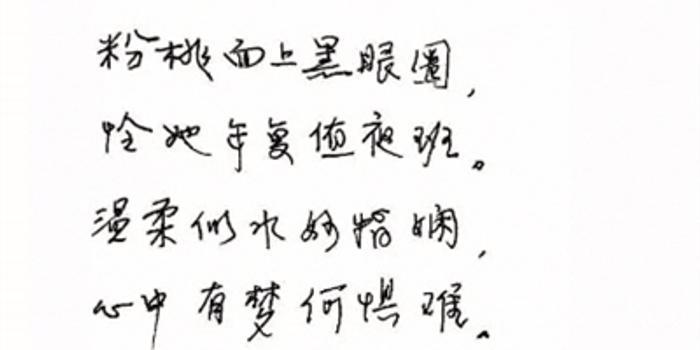 粉桃面上黑眼圈，
怜她年复值夜班。
温柔似水妙指娴，
心中有梦何惧难。